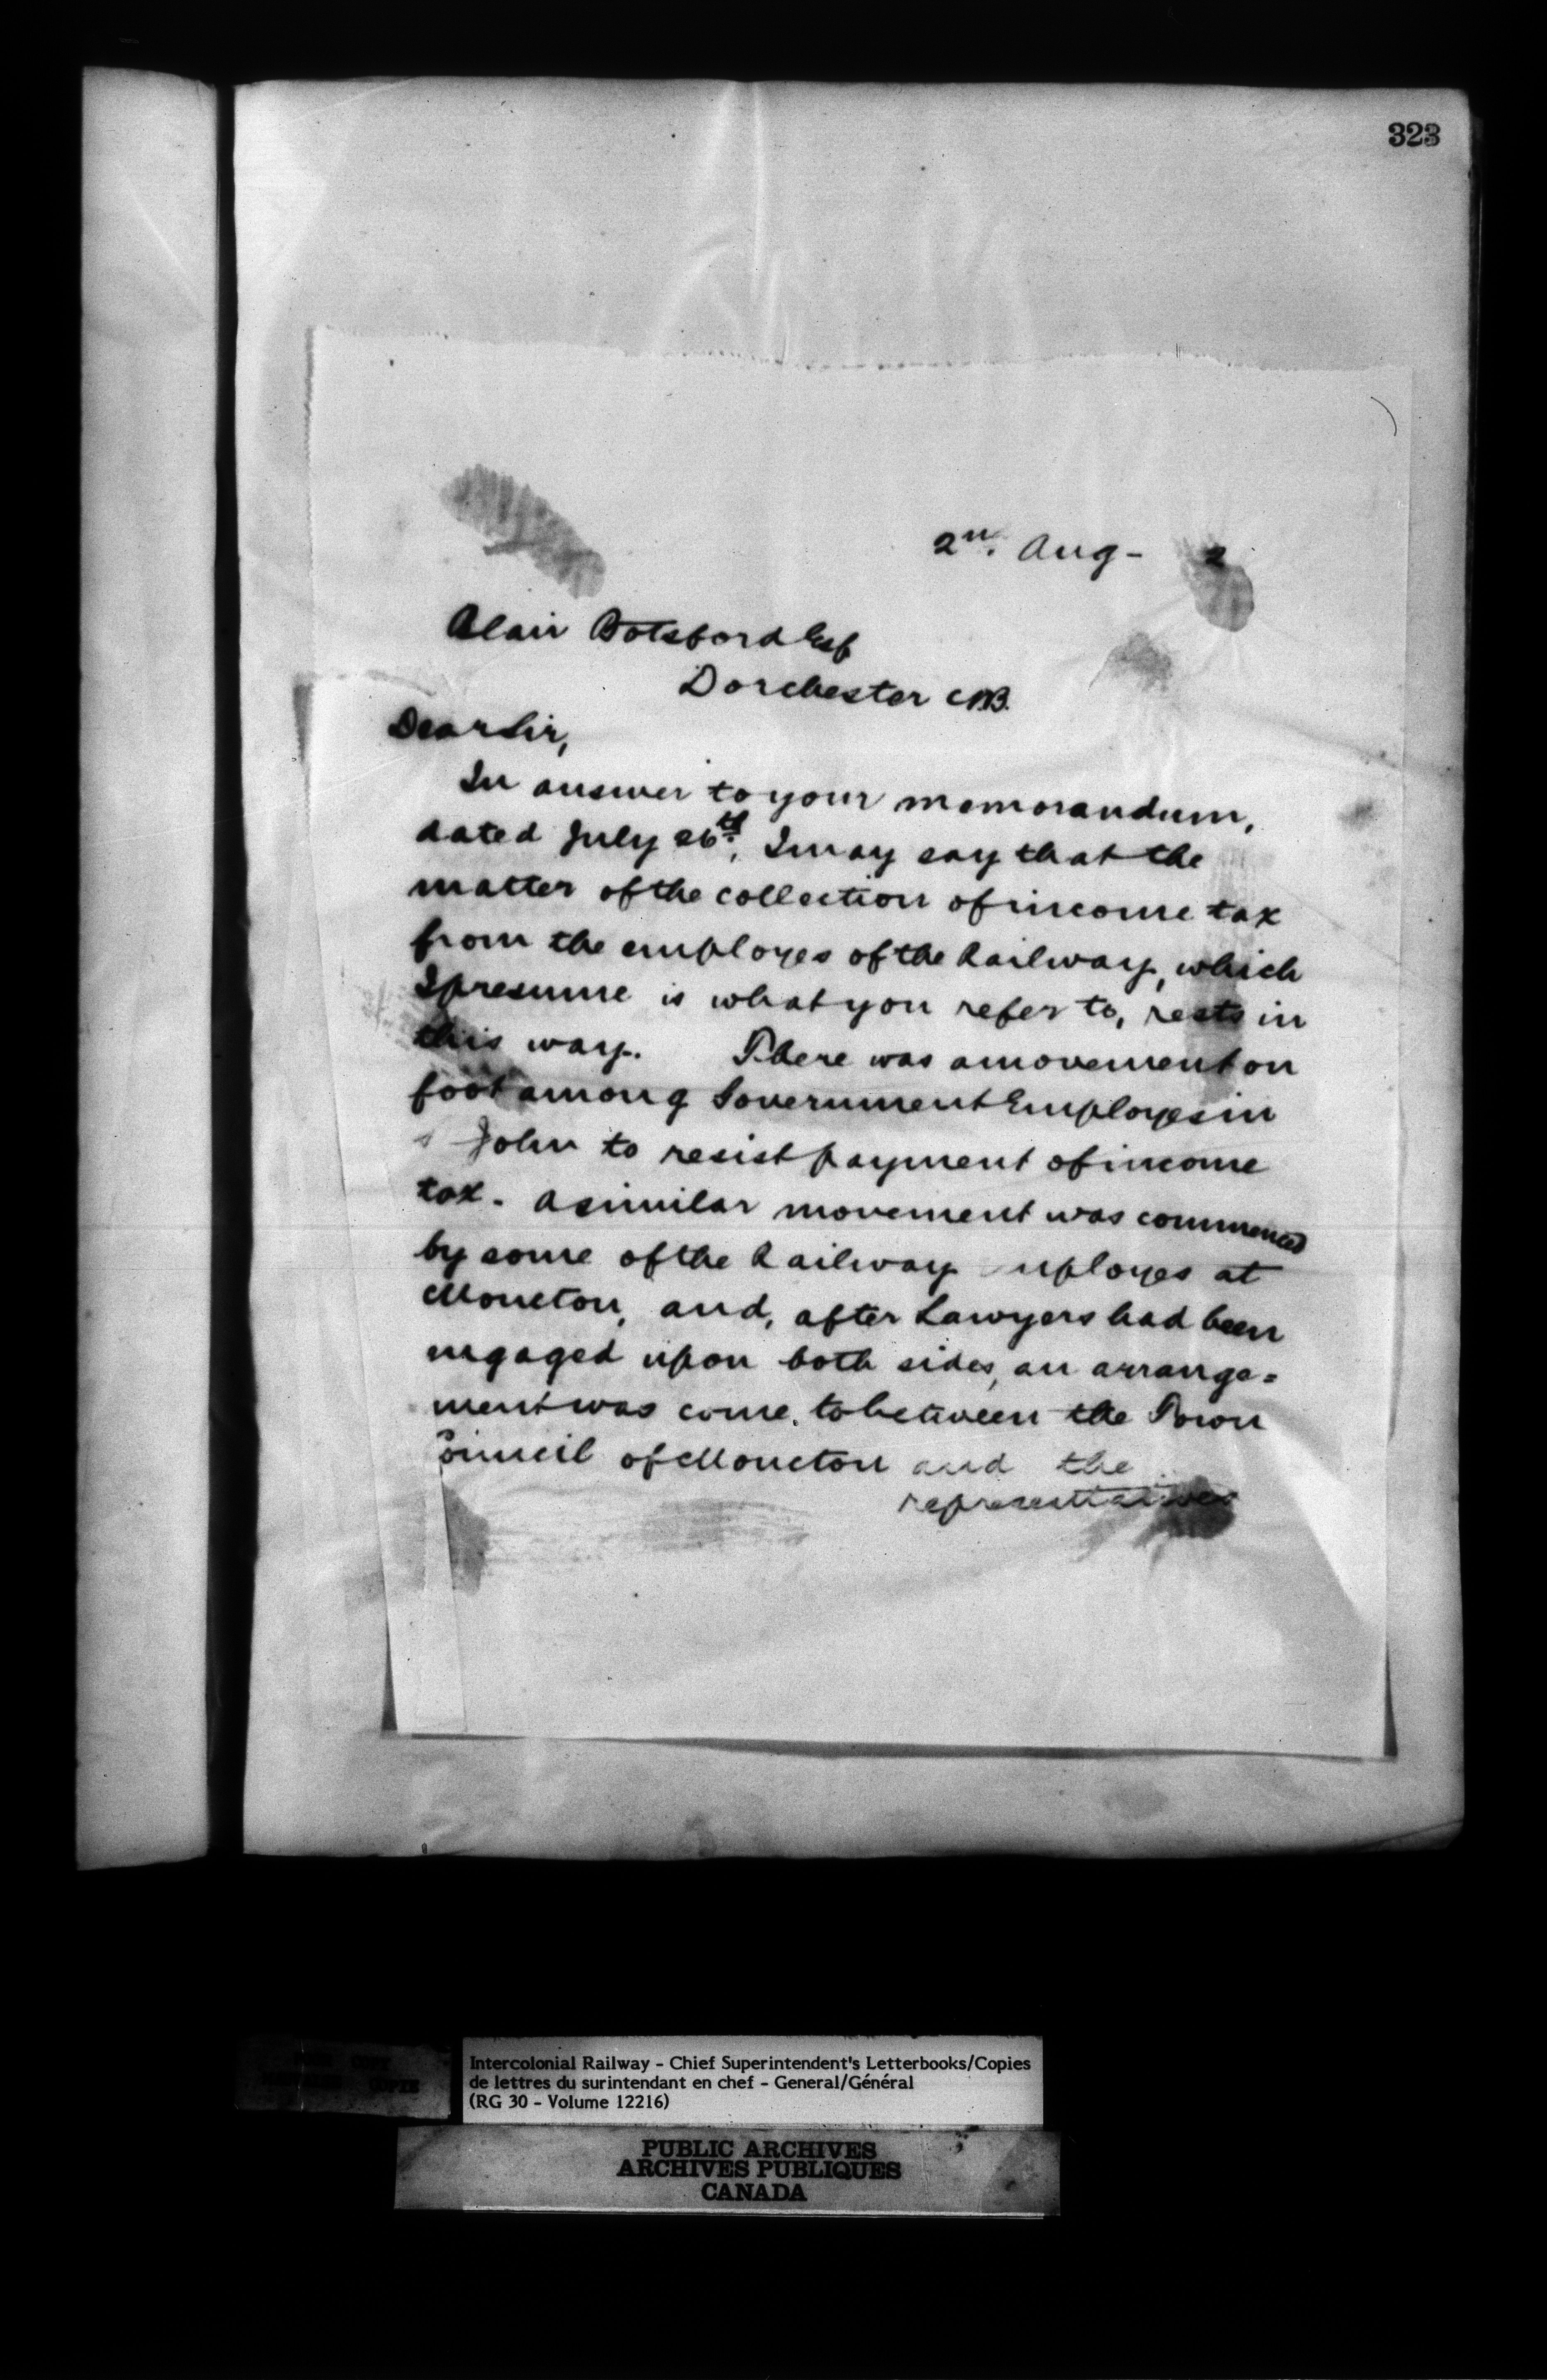 323
2nd. Aug - 2
Blair Botsford Esq
Dorchester N.B.
Dear Sir,
In answer to your memorandum,
dated July 26th, I may say that the
matter of the collection of income tax
from the employes of the Railway, which
I presume is what you refer to, rests in
this way. There was a movement on
foot among Government Employes in
S John to resist payment of income
tax. A similar movement was commenced
by some of the Railway mployes at
Moncton, and, after Lawyers had been
engaged upon both sides, an arrange=
ment was come to between the Town
Council of Moncton and the
representatives
Intercolonial Railway - Chief Superintendent's Letterbooks/Copies
de lettres du surintendant en chef - General/Général
(RG 30 - Volume 12216)
PUBLIC ARCHIVES
ARCHIVES PUBLIQUES
CANADA